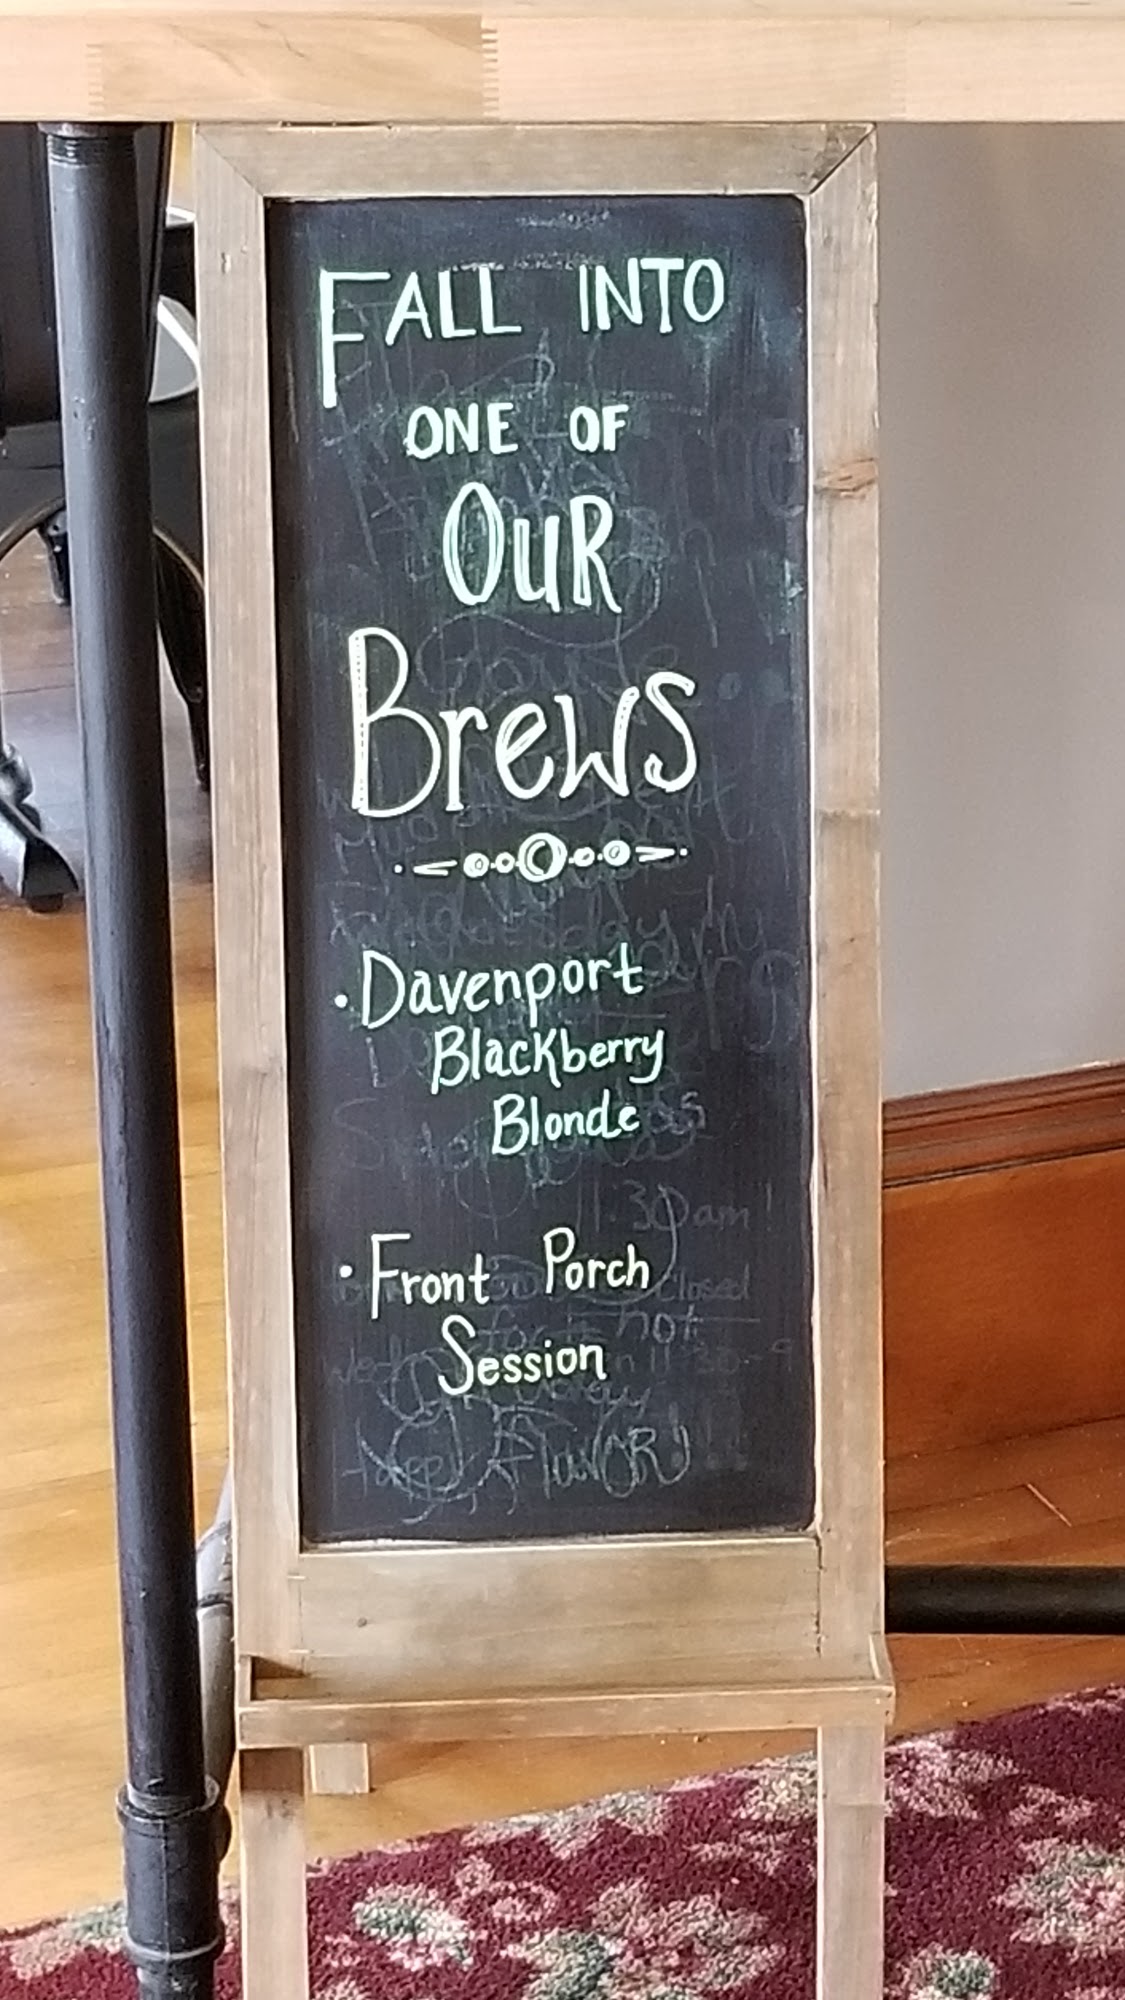 FALL INTO
ONE OF
OUR
Brews
• Davenport
Blackberry
Blonde
11:30am!
closed
• Front Porch
Session